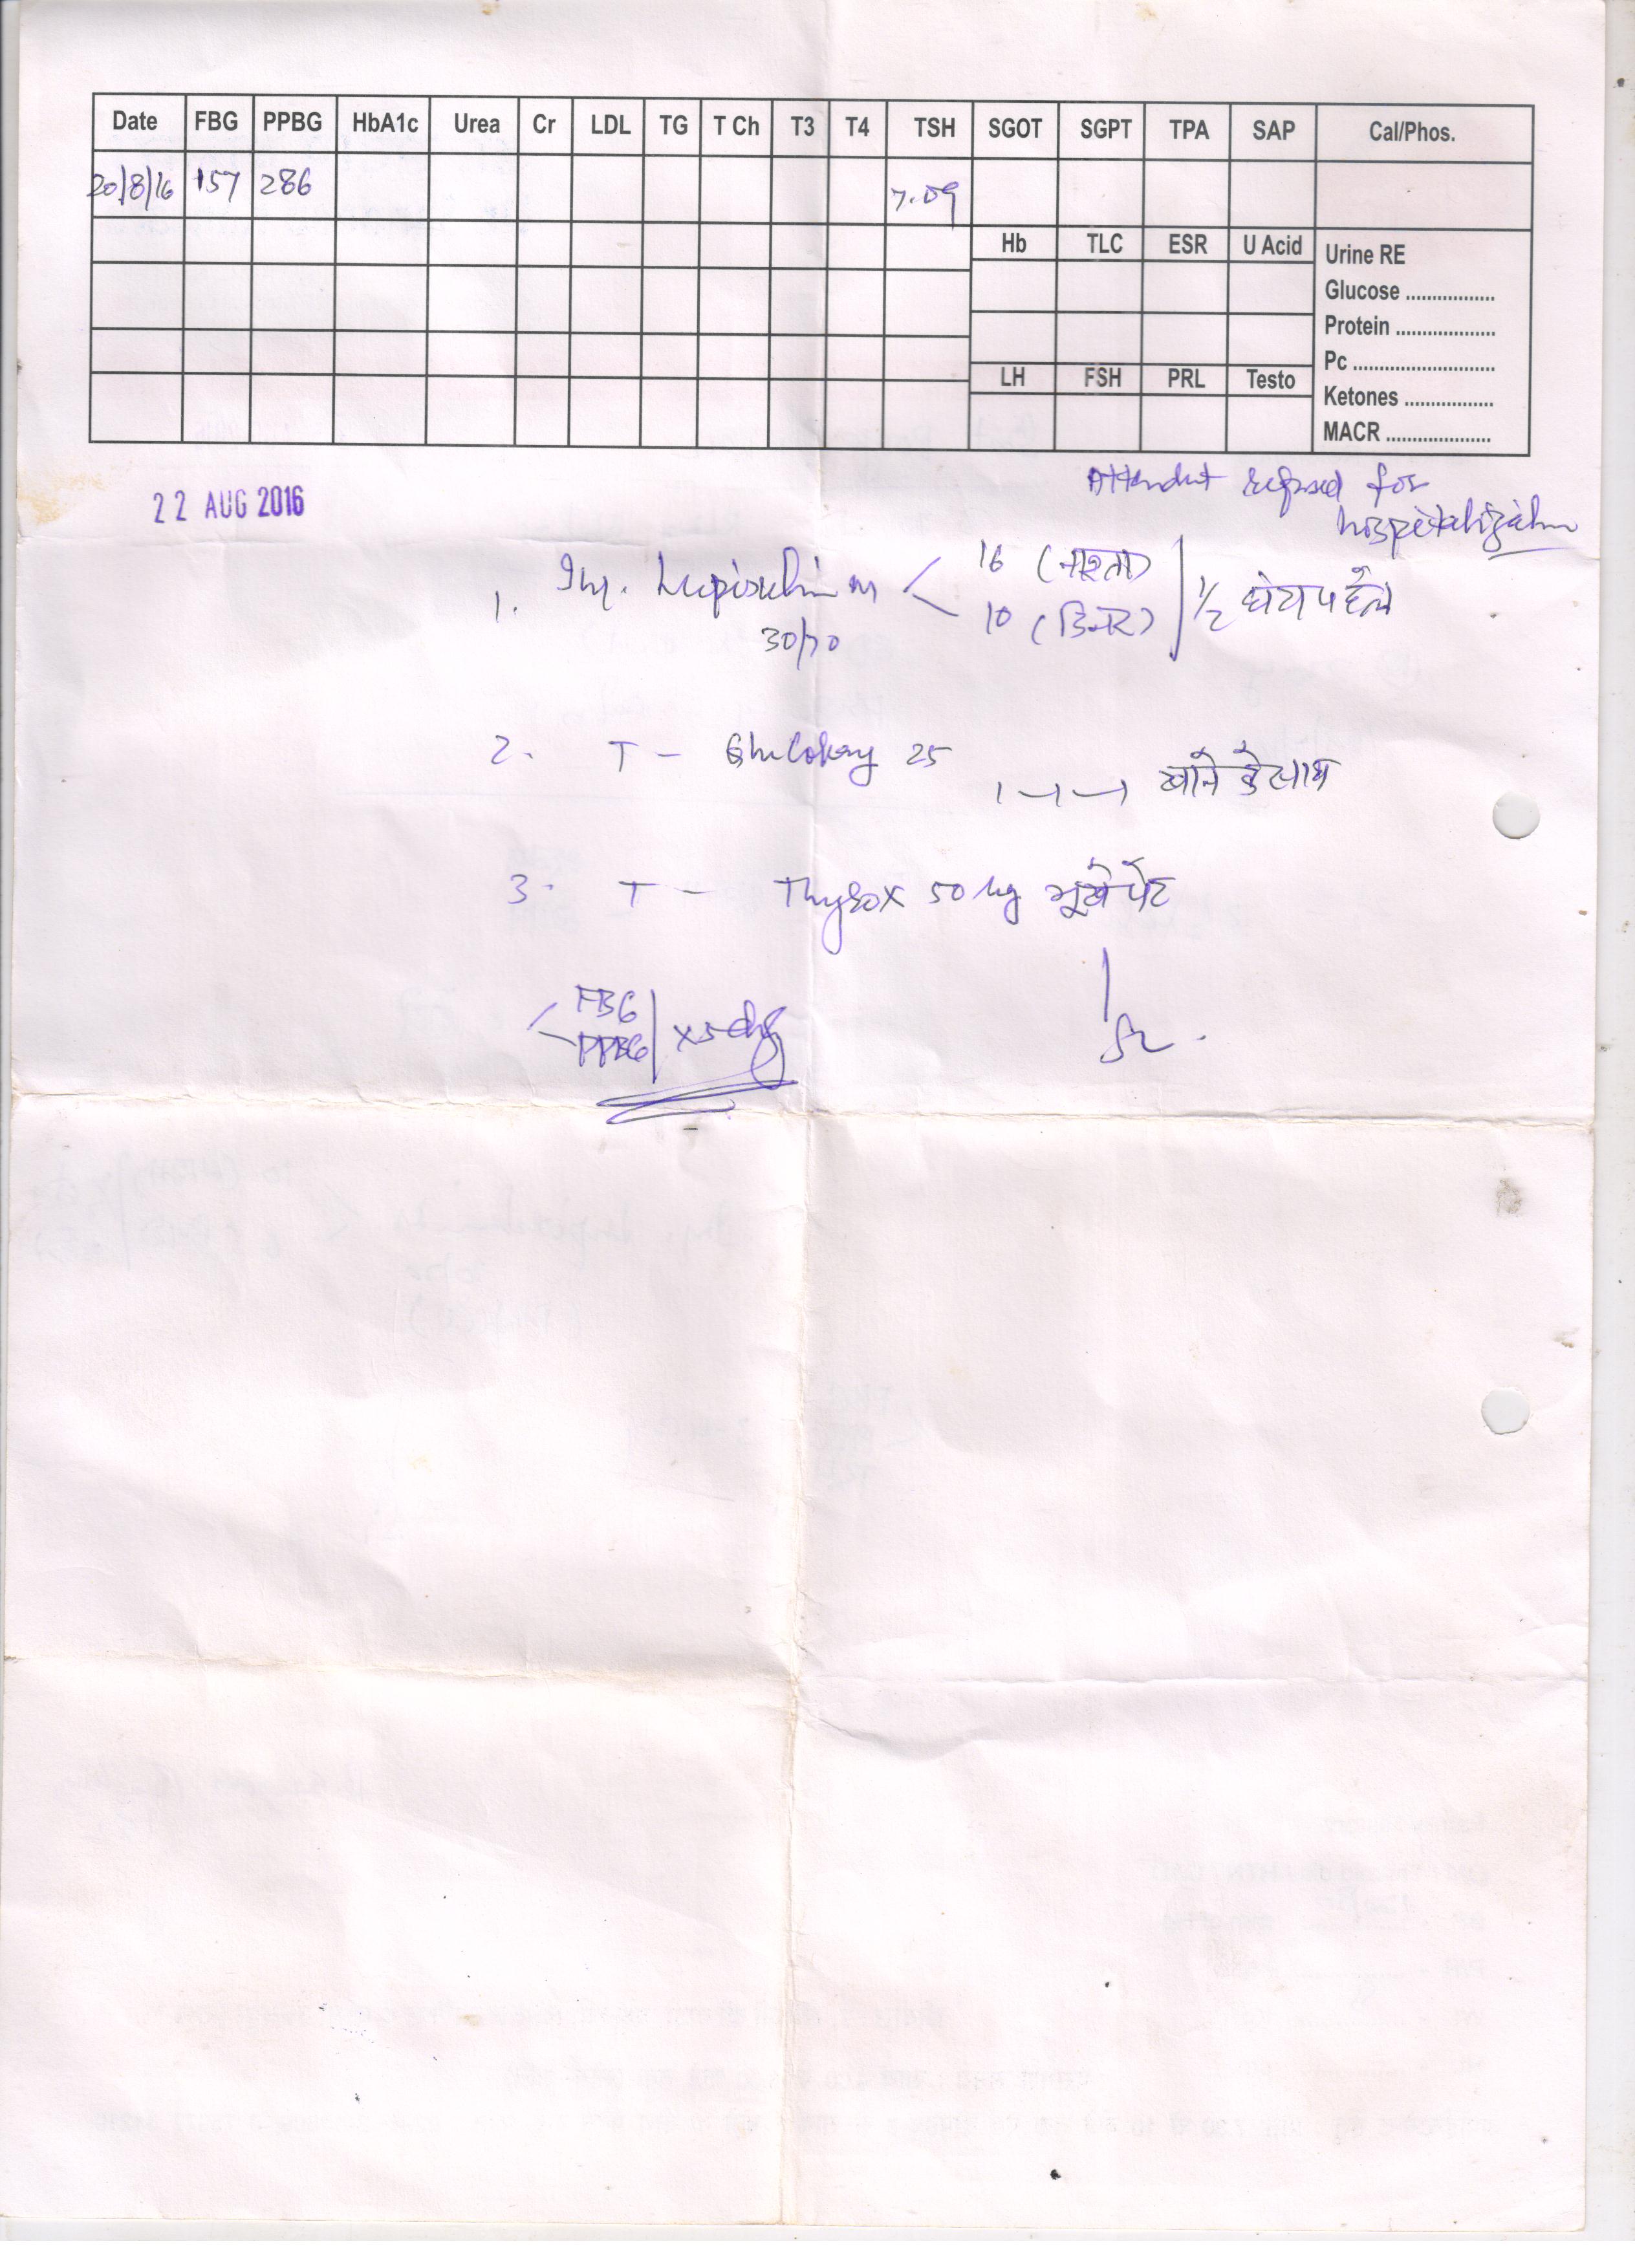 Date FBG PPBG HbA1c Urea Cr LDL TG T Ch T3 T4 TSH SGOT SGPT TPA SAP Cal/Phos.
20/8/16 157 286 7.09
Hb TLC ESR U Acid Urine RE
Glucose .................
Protein ...................
Pc ..........................
LH FSH PRL Testo
Ketones .................
MACR ....................
Attendent refused for
hospitalization
22 AUG 2016
1. Inj. Lupisulin M 16 (नाश्ता) 1/2 घंटा पहले
30/70 10 (डिनर)
2. T - 25 1-1-1 खाने के साथ
3. T - Thyrox 50 µg भूखे पेट
FBG
PPBG x 5